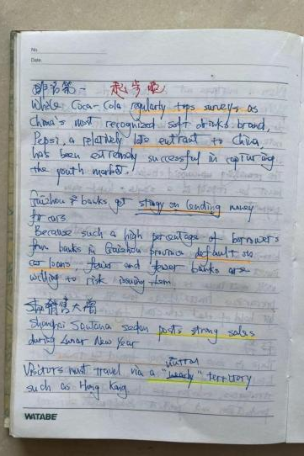 No
Date
While Coca-Cola regularly tops surveys as
China's most recognized soft drinks brand,
Pepsi, a relatively late entrant to China,
has been extremely successful in capturing
the youth market.
Guizhou banks get stingy on lending money
for cars
Because such a high percentage of borrowers
from banks in Guizhou province default on
car loans, fewer and fewer banks are
willing to risk issuing them
销售大增
Shanghai Santana sedan posts strong sales
during Lunar New Year
neutral
Visitors must travel via a "ready" territory
such as Hong Kong
WITABE